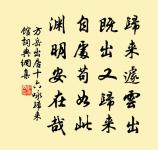 歸來遽雲出
既出又歸來
自處苟如此
淵明安在哉
方岳山居十六咏歸来
館詞典網集